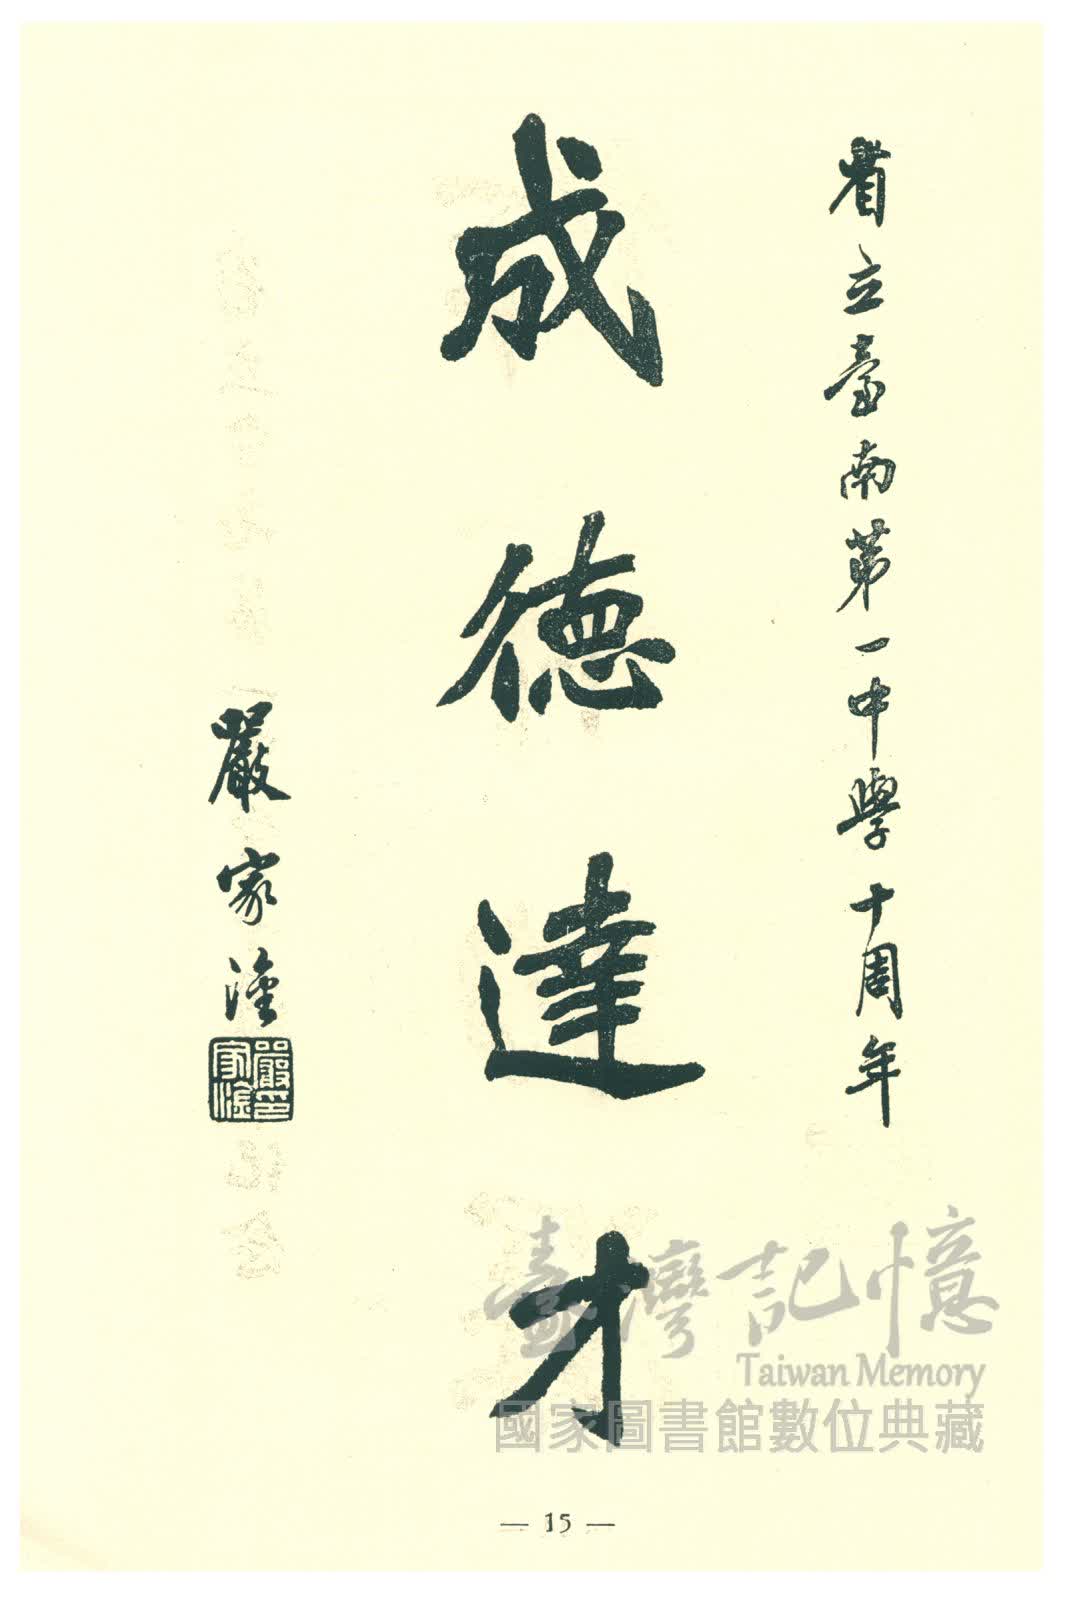 省立臺南第一中學十周年
成德達才
嚴家淦
嚴家淦印
臺灣記憶
Taiwan Memory
國家圖書館數位典藏
— 15 —